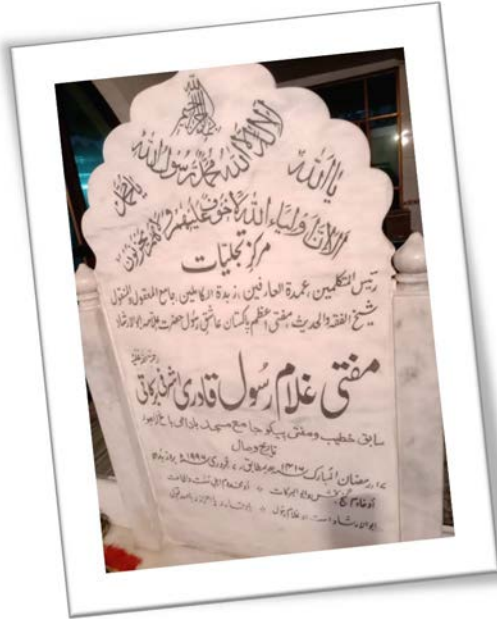 بسم الله الرحمن الرحيم
لا إله إلا الله محمد رسول الله
یا اللہ
یا محمد
الا ان اولیاء الله لا خوف عليهم ولا هم يحزنون
مرکز تجلیات
رئیس المتکلمین، عمدۃ العارفین، زبدۃ الکاملین، جامع المعقول والمنقول
شیخ الفقہ والحدیث، مفتی اعظم پاکستان عاشق رسول حضرت علامہ ابوالارشاد
مفتی غلام رسول قادری اشرفی برکاتی
سابق خطیب و مفتی پیکو جامع مسجد بادامی باغ لاہور
تاریخ وصال
۱۷ رمضان المبارک ۱۴۱۶ھ بمطابق ۷ فروری ۱۹۹۶ء بروز بدھ